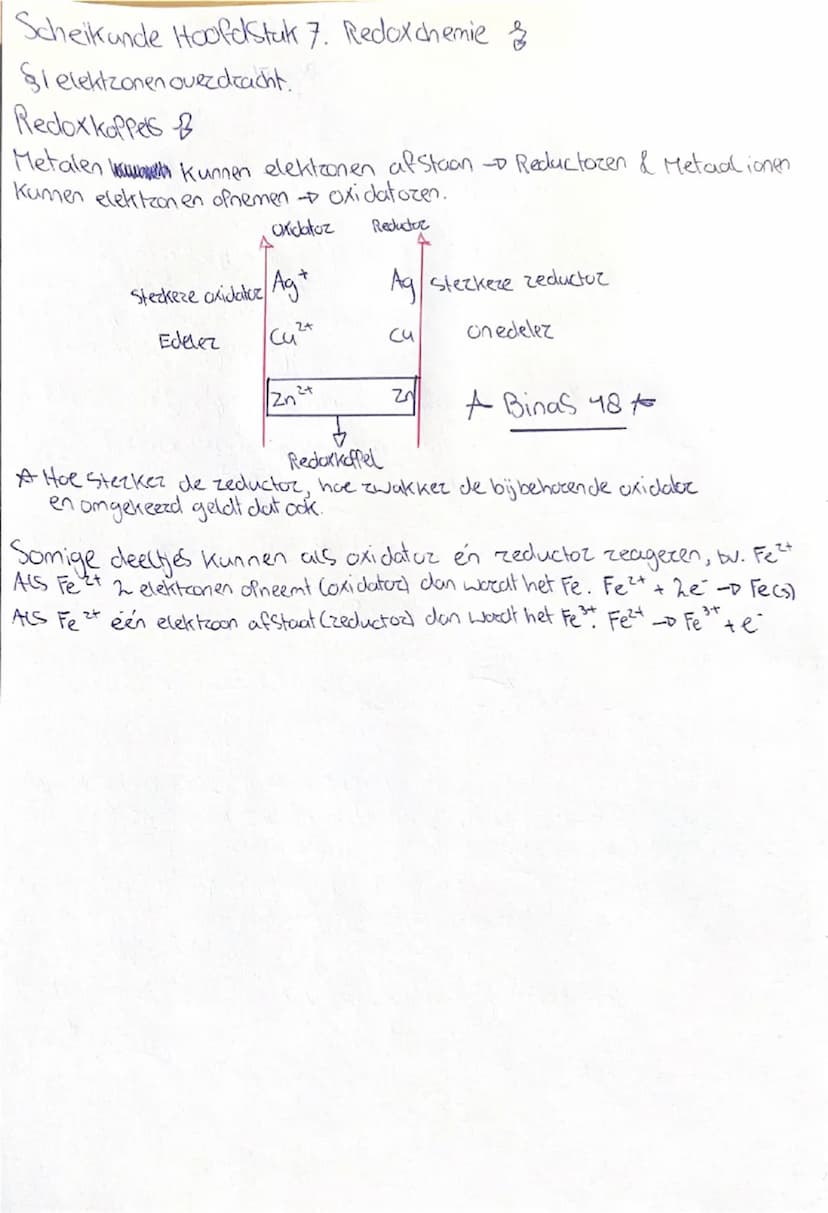 Scheikunde Hoofdstuk 7. Redoxchemie
§1 elektronenoverdracht.
Redoxkoppels
Metalen kunnen elektronen afstaan → Reductoren & Metaalionen
kunnen elektronen opnemen → oxidatoren.
Oxidator Reductor
Sterkere oxidator Ag⁺ Ag sterkere reductor
Edeler Cu²⁺ Cu onedeler
Zn²⁺ Zn
Binas 48
Redoxkoppel
Hoe sterker de reductor, hoe zwakker de bijbehorende oxidator
en omgekeerd geldt dat ook.
Somige deeltjes kunnen als oxidator én reductor reageren, bv. Fe²⁺
Als Fe²⁺ 2 elektronen opneemt (oxidator) dan wordt het Fe. Fe²⁺ + 2e⁻ → Fe(s)
Als Fe²⁺ één elektron afstaat (reductor) dan wordt het Fe³⁺. Fe²⁺ → Fe³⁺ + e⁻